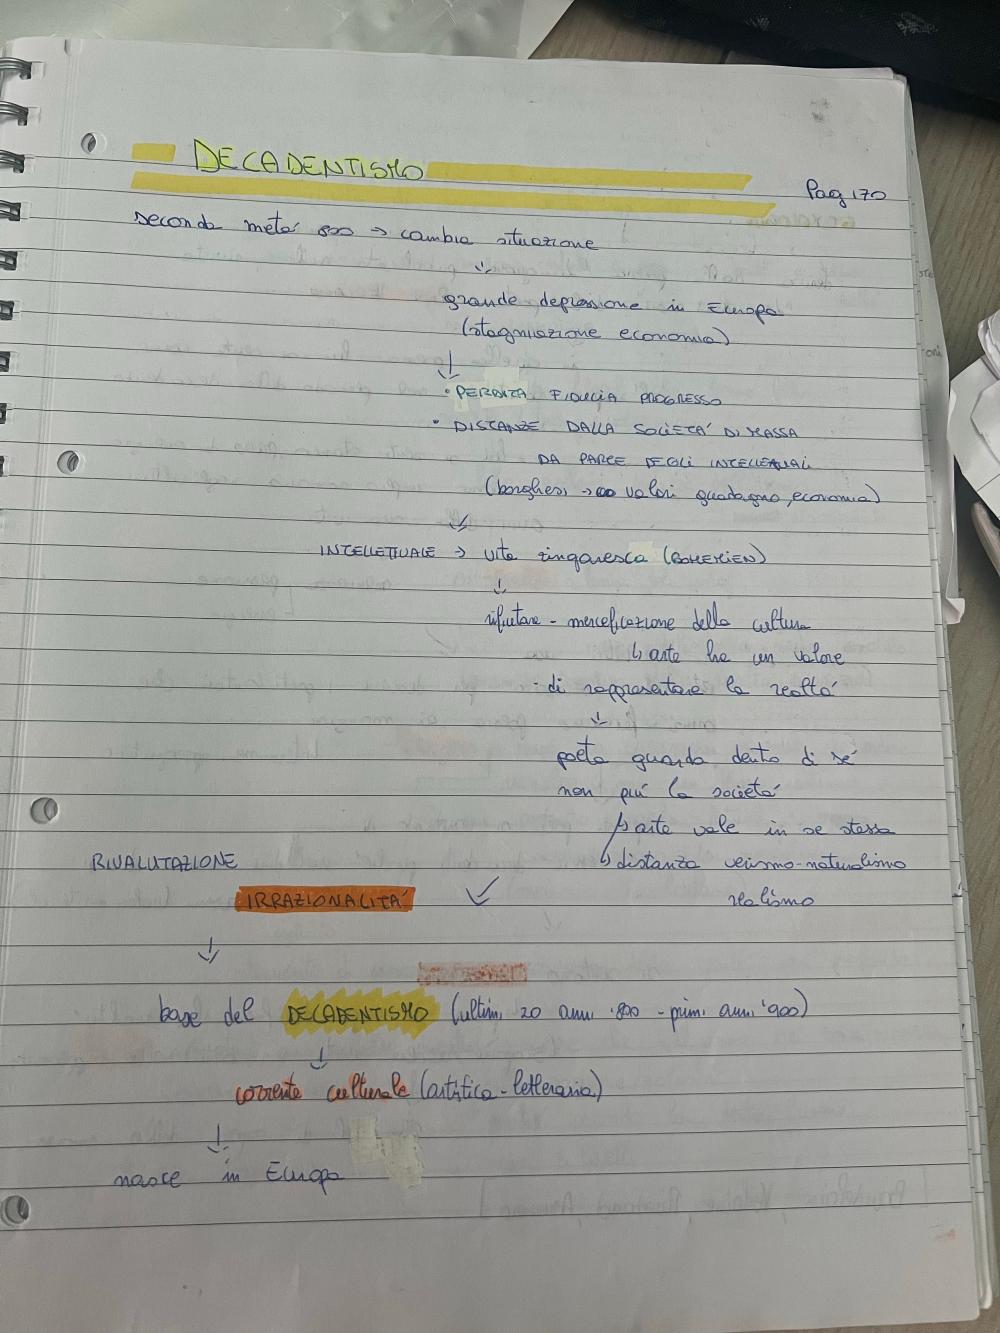 DECADENTISMO
Pag 170
seconda metá 800 → cambia situazione
↓
grande depressione in Europa
(stagniazione economia)
↓
• PERDITA FIDUCIA PROGRESSO
• DISTANZE DALLA SOCIETÁ DI MASSA
DA PARTE DEGLI INTELLETTUALI
(borghesi → valori guadagno, economia)
↓
INTELLETTUALE → vita zingaresca (BOHEMIEN)
↓
rifiutare - merceficazione della cultura
↳ arte ha un valore
- di rappresentare la realtá
↓
poeta guarda dentro di sé
non piú la societá
↱ arte vale in se stessa
RIVALUTAZIONE
↳ distanza verismo-naturalismo
IRRAZIONALITÁ
realismo
↓
base del DECADENTISMO (ultimi 20 anni '800 - primi anni '900)
↓
corrente culturale (artistica-letteraria)
↓
nasce in Europa